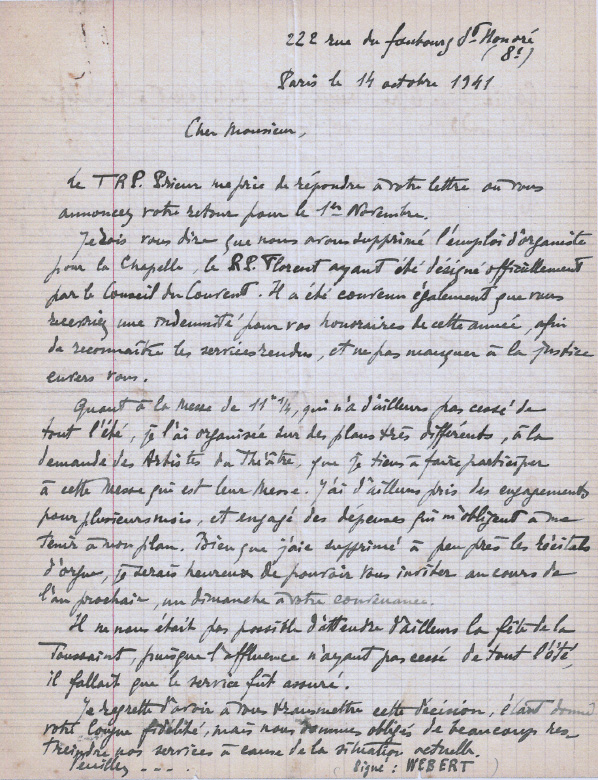 222 rue du faubourg St Honoré
(8e)
Paris le 14 octobre 1941
Cher Monsieur,
Le T.R.P. Prieur me prie de répondre à votre lettre où vous
annoncez votre retour pour le 1er Novembre.
Je dois vous dire que nous avons supprimé l'emploi d'organiste
pour la Chapelle, le R.P. Florent ayant été désigné officiellement
par le Conseil du Couvent. Il a été convenu également que vous
recevriez une indemnité pour vos honoraires de cette année, afin
de reconnaître les services rendus, et ne pas manquer à la justice
envers vous.
Quant à la messe de 11h 1/4, qui n'a d'ailleurs pas cessé de
tout l'été, je l'ai organisée sur des plans très différents, à la
demande des Artistes du Théâtre, que je tiens à faire participer
à cette Messe qui est leur Messe. J'ai d'ailleurs pris des engagements
pour plusieurs mois, et engagé des dépenses qui m'obligent à me
tenir à mon plan. Bien que j'aie supprimé à peu près les récitals
d'orgue, je serais heureux de pouvoir vous inviter au cours de
l'an prochain, un dimanche à votre convenance.
Il ne nous était pas possible d'attendre d'ailleurs la fête de la
Toussaint, puisque l'affluence n'ayant pas cessé de tout l'été,
il fallait que le service fût assuré.
Je regrette d'avoir à vous transmettre cette décision, étant donné
votre longue fidélité, mais nous sommes obligés de beaucoup res-
treindre nos services à cause de la situation actuelle.
Veuillez - - - . (Signé : WEBERT)